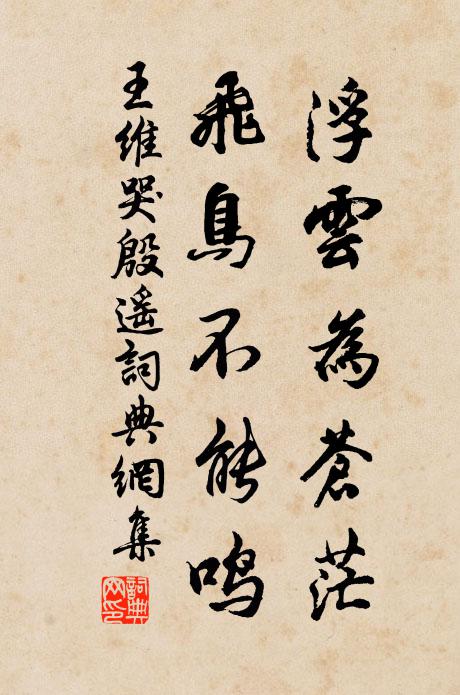 浮雲為蒼茫
飛鳥不能鳴
王維哭殷遥詞典網集
詞典
网印